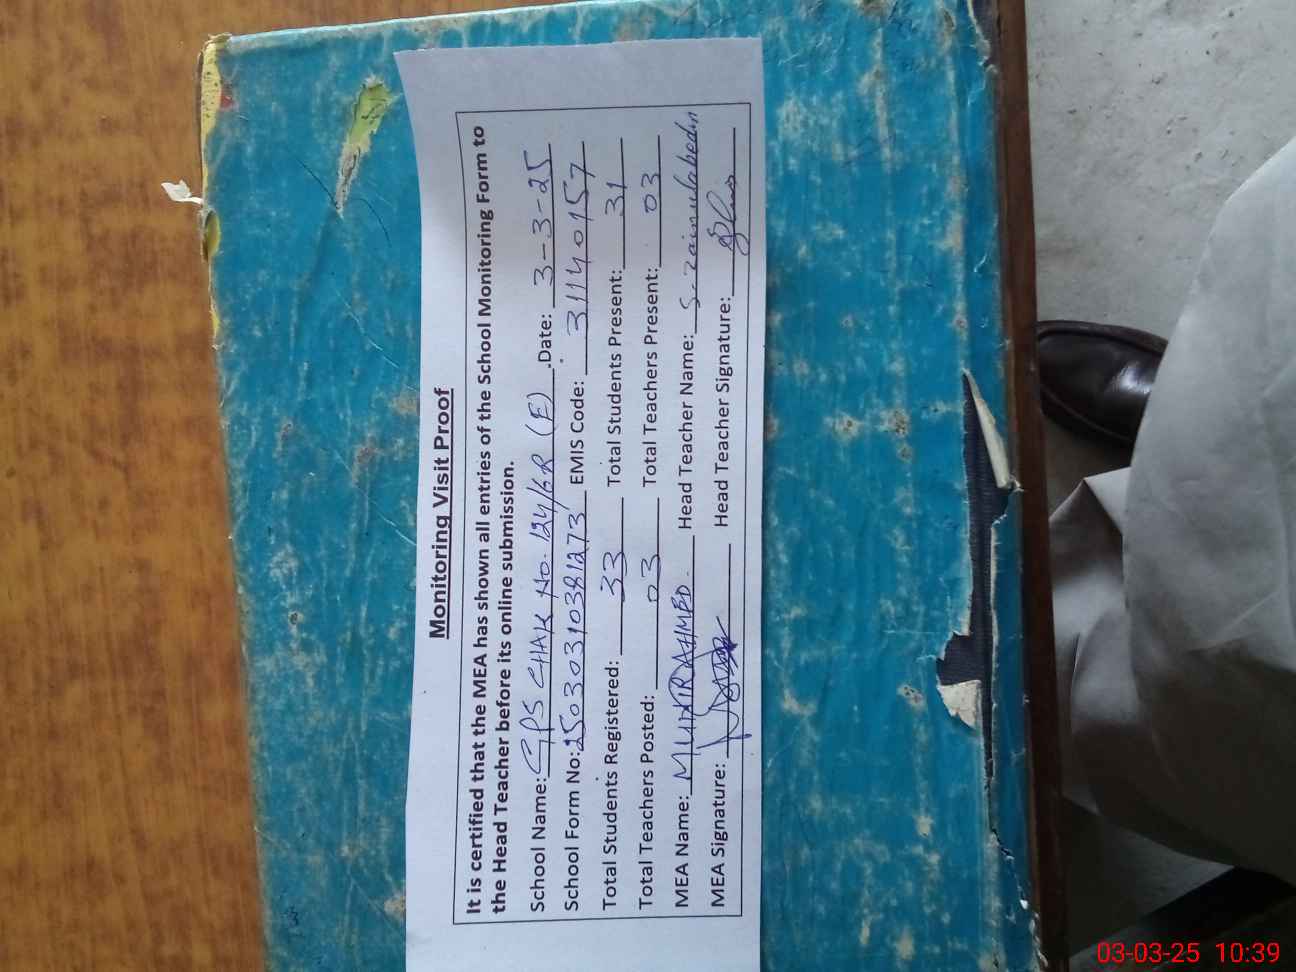 Monitoring Visit Proof
It is certified that the MEA has shown all entries of the School Monitoring Form to
the Head Teacher before its online submission.
School Name: GPS CHAK No. 124/6R (E) . Date: 3-3-25
School Form No: 25030310381273 EMIS Code: 31140157
Total Students Registered: 33 Total Students Present: 31
Total Teachers Posted: 03 Total Teachers Present: 03
MEA Name: AHMED. Head Teacher Name: S. zainulabedin
MEA Signature: Head Teacher Signature:
03-03-25 10:39